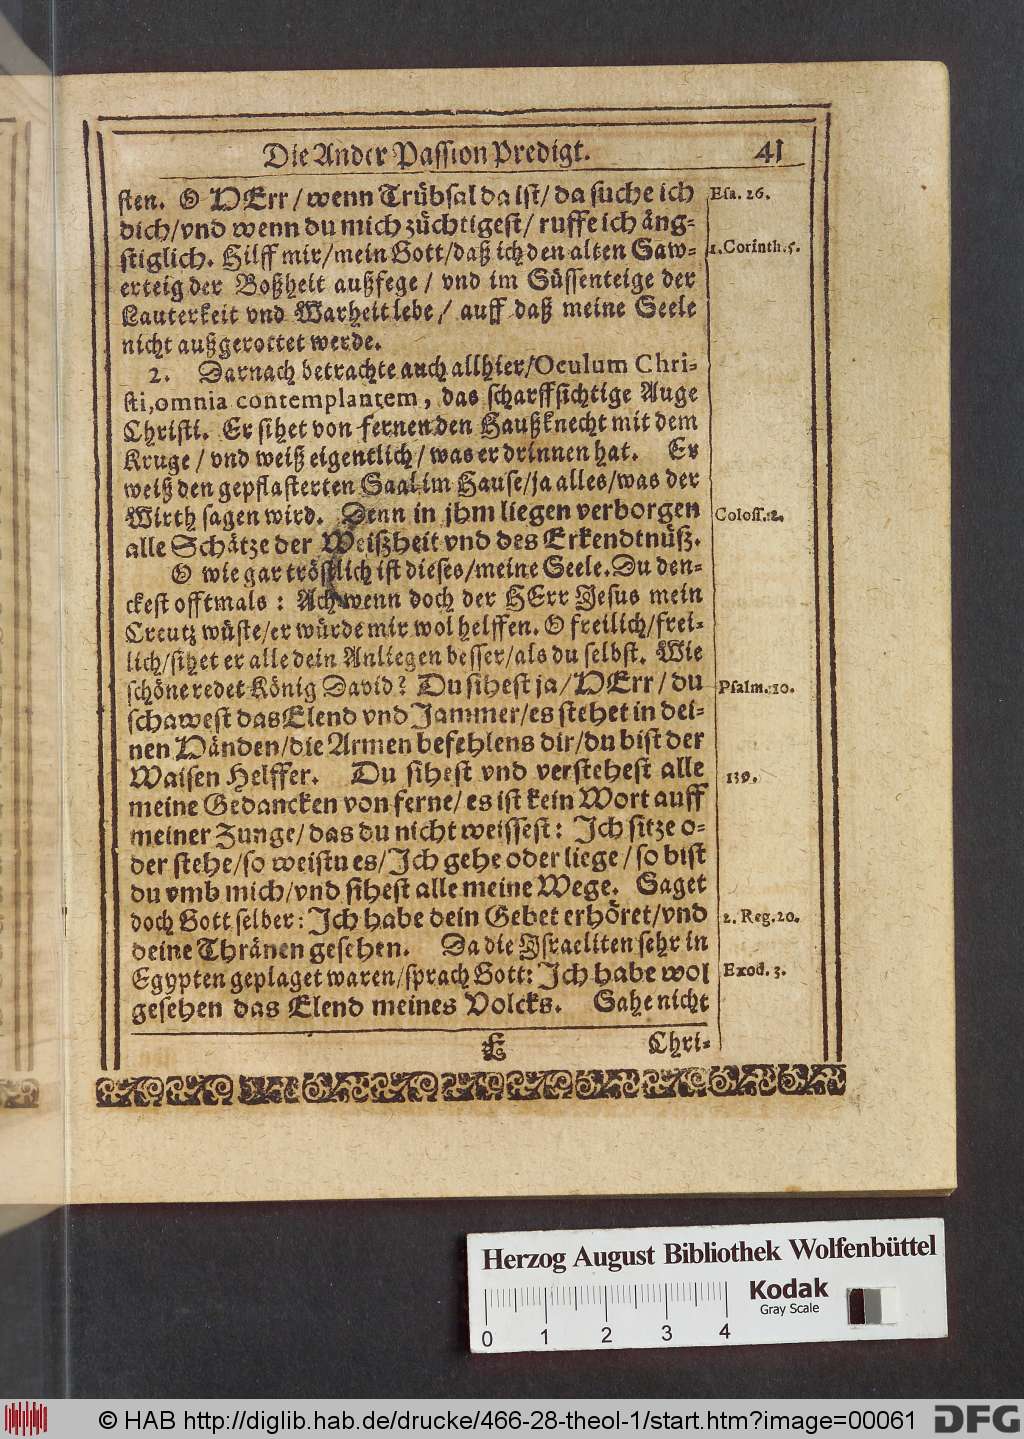 Die Ander Passion Predigt. 41
sten. O HErr/wenn Trübsal da ist/da suche ich
Esa. 26.
dich/vnd wenn du mich züchtigest/ruffe ich äng-
stiglich. Hilff mir/mein Gott/daß ich den alten Saw-
1. Corinth. 5.
erteig der Boßheit außfege/vnd im Süssenteige der
Lauterkeit vnd Warheit lebe/auff daß meine Seele
nicht außgerottet werde.
2. Darnach betrachte auch allhier/Oculum Chri-
sti,omnia contemplantem, das scharffsichtige Auge
Christi. Er sihet von fernen den Haußknecht mit dem
Kruge/vnd weiß eigentlich/was er drinnen hat. Er
weiß den gepflasterten Saal im Hause/ja alles/was der
Wirth sagen wird. Denn in jhm liegen verborgen
Coloss. 2.
alle Schätze der Weißheit vnd des Erkendtnüß.
O wie gar tröstlich ist dieses/meine Seele. Du den-
ckest offtmals: Ach wenn doch der HErr Jesus mein
Creutz wüste/er würde mir wol helffen. O freilich/frei-
lich/sihet er alle dein Anliegen besser/als du selbst. Wie
schöne redet König David? Du sihest ja/HErr/du
Psalm. 10.
schawest das Elend vnd Jammer/es stehet in dei-
nen Händen/die Armen befehlens dir/du bist der
Waisen Helffer. Du sihest vnd verstehest alle
139.
meine Gedancken von ferne/es ist kein Wort auff
meiner Zunge/das du nicht weissest: Ich sitze o-
der stehe/so weistu es/Ich gehe oder liege/so bist
du vmb mich/vnd sihest alle meine Wege. Saget
doch Gott selber: Ich habe dein Gebet erhöret/vnd
2. Reg. 20.
deine Thränen gesehen. Da die Israeliten sehr in
Egypten geplaget waren/sprach Gott: Ich habe wol
Exod. 3.
gesehen das Elend meines Volcks. Sahe nicht
F Chri-
Herzog August Bibliothek Wolfenbüttel
Kodak
Gray Scale
0 1 2 3 4
© HAB http://diglib.hab.de/drucke/466-28-theol-1/start.htm?image=00061
DFG